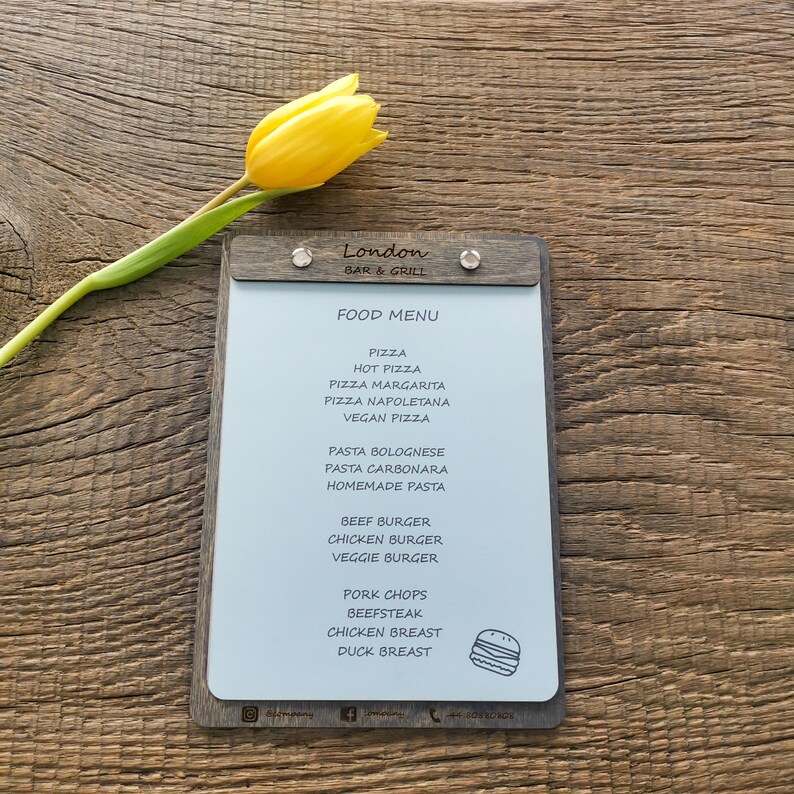 London
BAR & GRILL
FOOD MENU
PIZZA
HOT PIZZA
PIZZA MARGARITA
PIZZA NAPOLETANA
VEGAN PIZZA
PASTA BOLOGNESE
PASTA CARBONARA
HOMEMADE PASTA
BEEF BURGER
CHICKEN BURGER
VEGGIE BURGER
PORK CHOPS
BEEFSTEAK
CHICKEN BREAST
DUCK BREAST
@company company +44 80880808